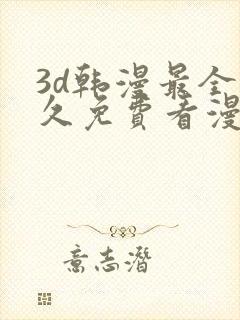 3d韩漫最全
久免费看漫
意志潜